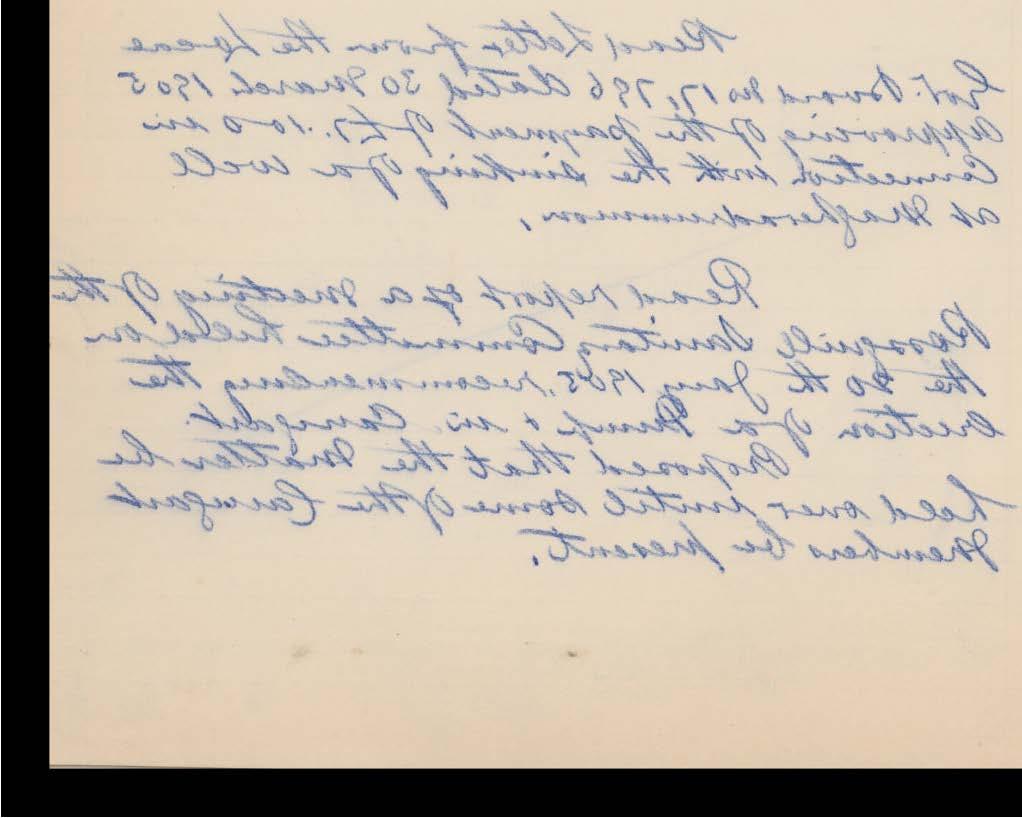 Read Letter from the Local
Govt. Board No 17,796 dated 30 March 1905
approving of the payment of £7.10-0 in
Connection with the sinking of a well
at Magheradrummon.
Read report of a meeting of the
Rossguill Sanitary Committee held on
the 20th Jany 1905, recommending the
erection of a Pump in Carrigart.
Proposed that the matter be
held over until some of the Carrigart
Members be present.